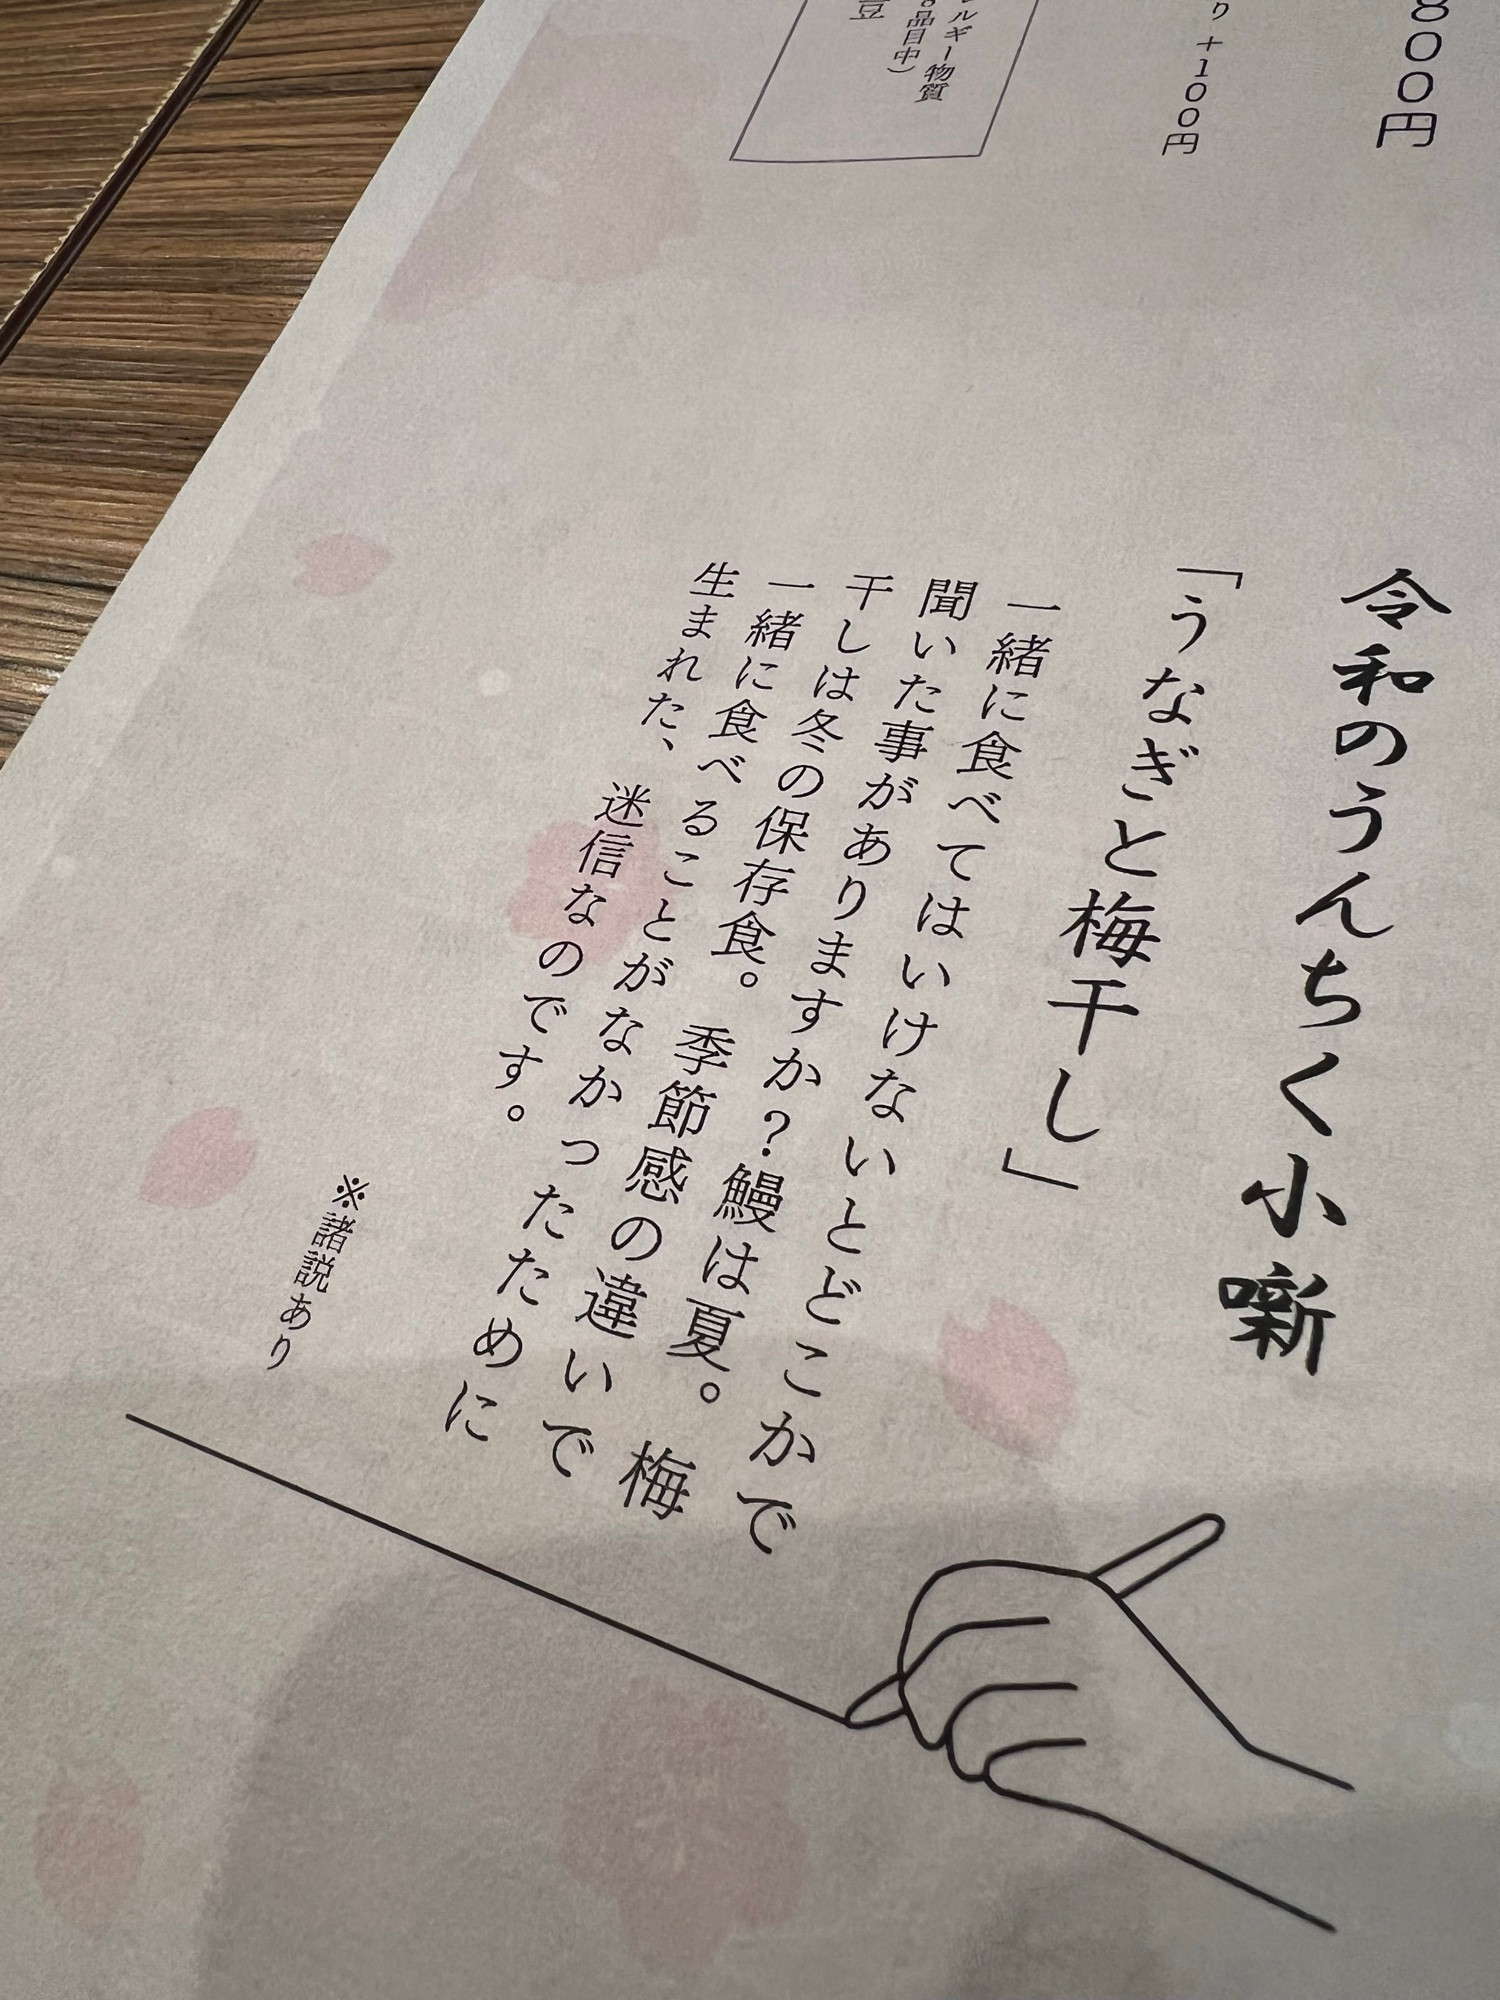 800円
り +100円
ルギー物質
品目中)
豆
令和のうんちく小噺
「うなぎと梅干し」
一緒に食べてはいけないとどこかで
聞いた事がありますか?鰻は夏。梅
干しは冬の保存食。季節感の違いで
一緒に食べることがなかったために
生まれた、迷信なのです。
※諸説あり